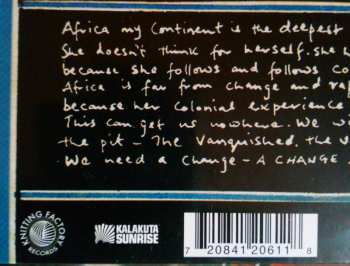 Africa my Continent is the deepest
She doesn't think for herself. she h
because she follows and follows Co
Africa is far from change and rap
because her Colonial experience
This can get us nowhere. We wi
the pit - The Vanquished, the v
We need a change - A CHANGE
KNITTING FACTORY RECORDS
KALAKUTA
SUNRISE
7 20841 20611 8